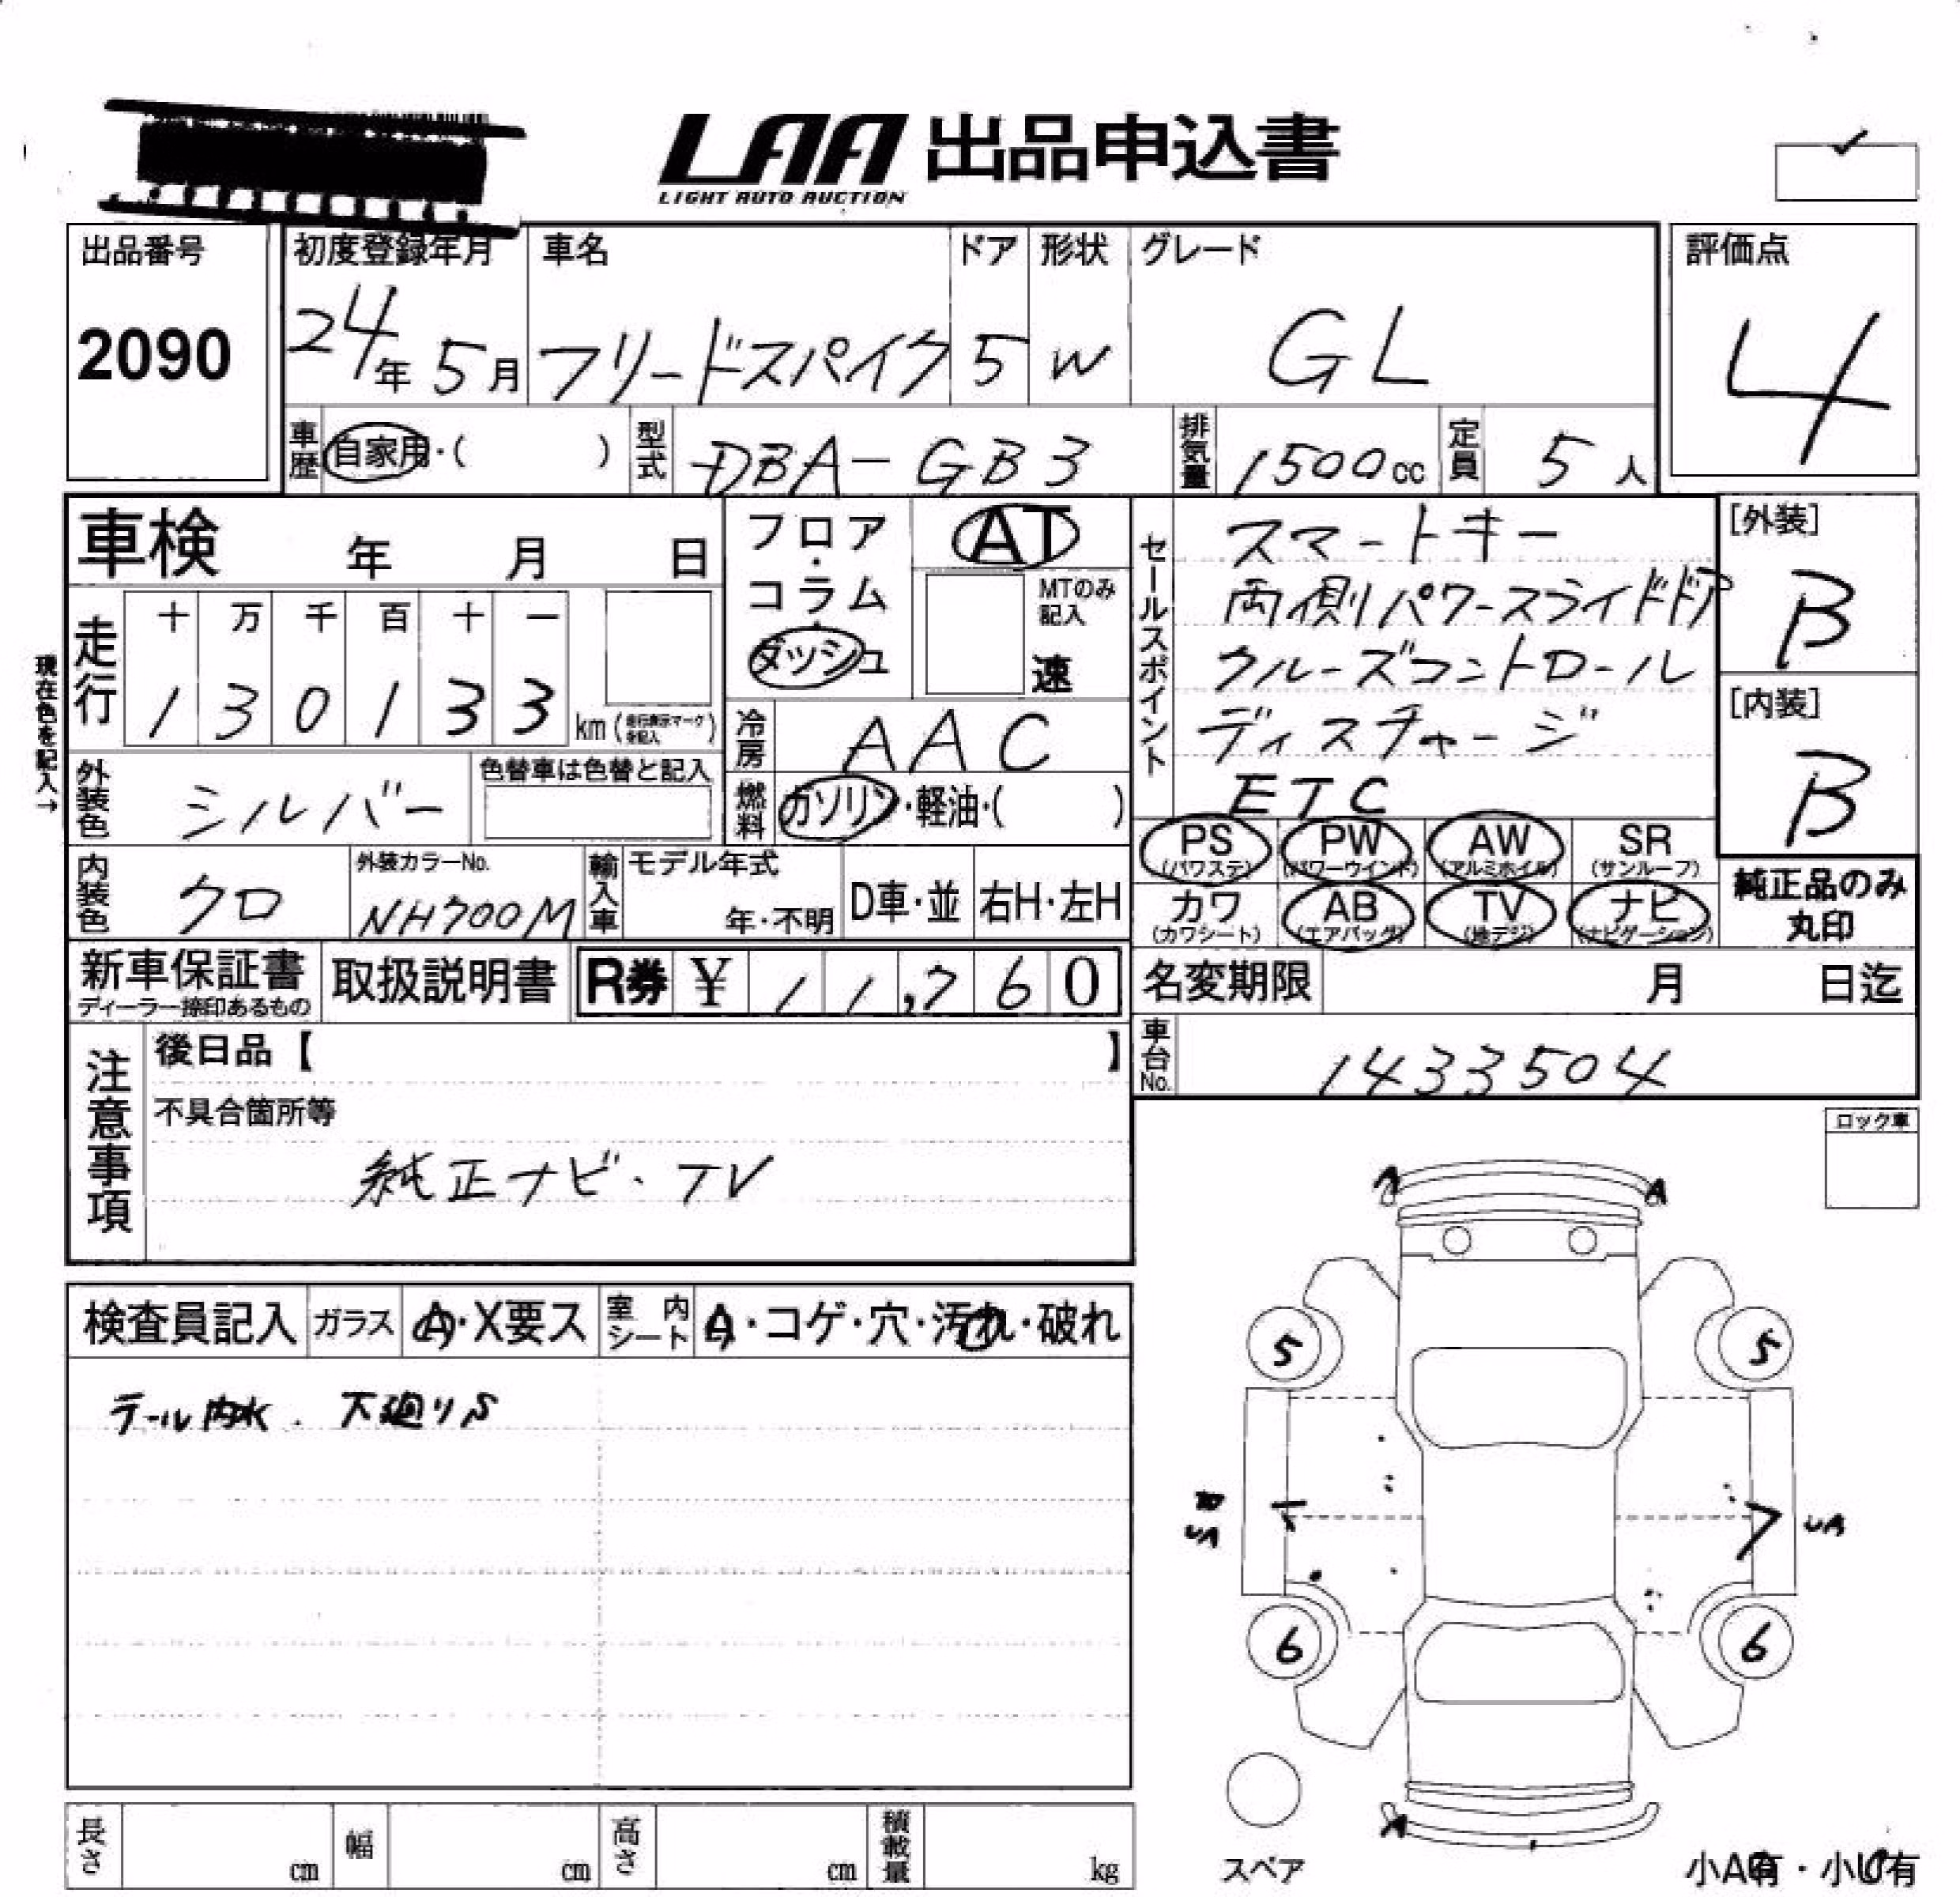 LAA 出品申込書
LIGHT AUTO AUCTION
出品番号
2090
初度登録年月
24年 5月
車名
フリードスパイク
ドア
5
形状
W
グレード
GL
評価点
4
車歴 自家用・( )
型式 DBA-GB3
排気量 1500cc
定員 5人
車検 年 月 日
フロア・コラム
ダッシュ
AT
MTのみ記入
速
セールスポイント
スマートキー
両側パワースライドドア
クルーズコントロール
ディスチャージ
ETC
[外装]
B
[内装]
B
現在色を記入→
走行
十 万 千 百 十 一
1 3 0 1 3 3 km (走行表示マークを記入)
冷房 AAC
外装色 シルバー
色替車は色替と記入
燃料 ガソリン・軽油・( )
PS (パワステ)
PW (パワーウインド)
AW (アルミホイル)
SR (サンルーフ)
カワ (カワシート)
AB (エアバッグ)
TV (地デジ)
ナビ (ナビゲーション)
純正品のみ丸印
内装色 クロ
外装カラーNo.
NH700M
輸入車
モデル年式
年・不明
D車・並
右H・左H
新車保証書
ディーラー捺印あるもの
取扱説明書
R券 ¥ 11,760
名変期限 月 日迄
車台No. 1433504
注意事項
後日品【 】
不具合箇所等
純正ナビ・TV
ロック車
検査員記入
ガラス A・X要ス
室内シート A・コゲ・穴・汚れ・破れ
テール内水. 下廻りS
A A
5 5
UA UA
6 6
A
スペア
小A有・小U有
長さ cm
幅 cm
高さ cm
積載量 kg